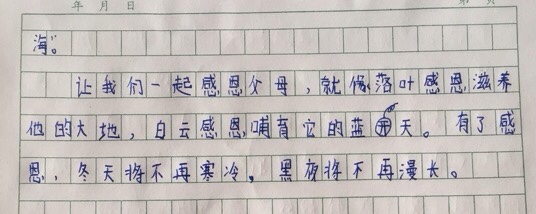 年 月 日
海”。
让我们一起感恩父母，就像落叶感恩滋养
他的大地，白云感恩哺育它的蓝天。有了感
恩，冬天将不再寒冷。黑夜将不再漫长。